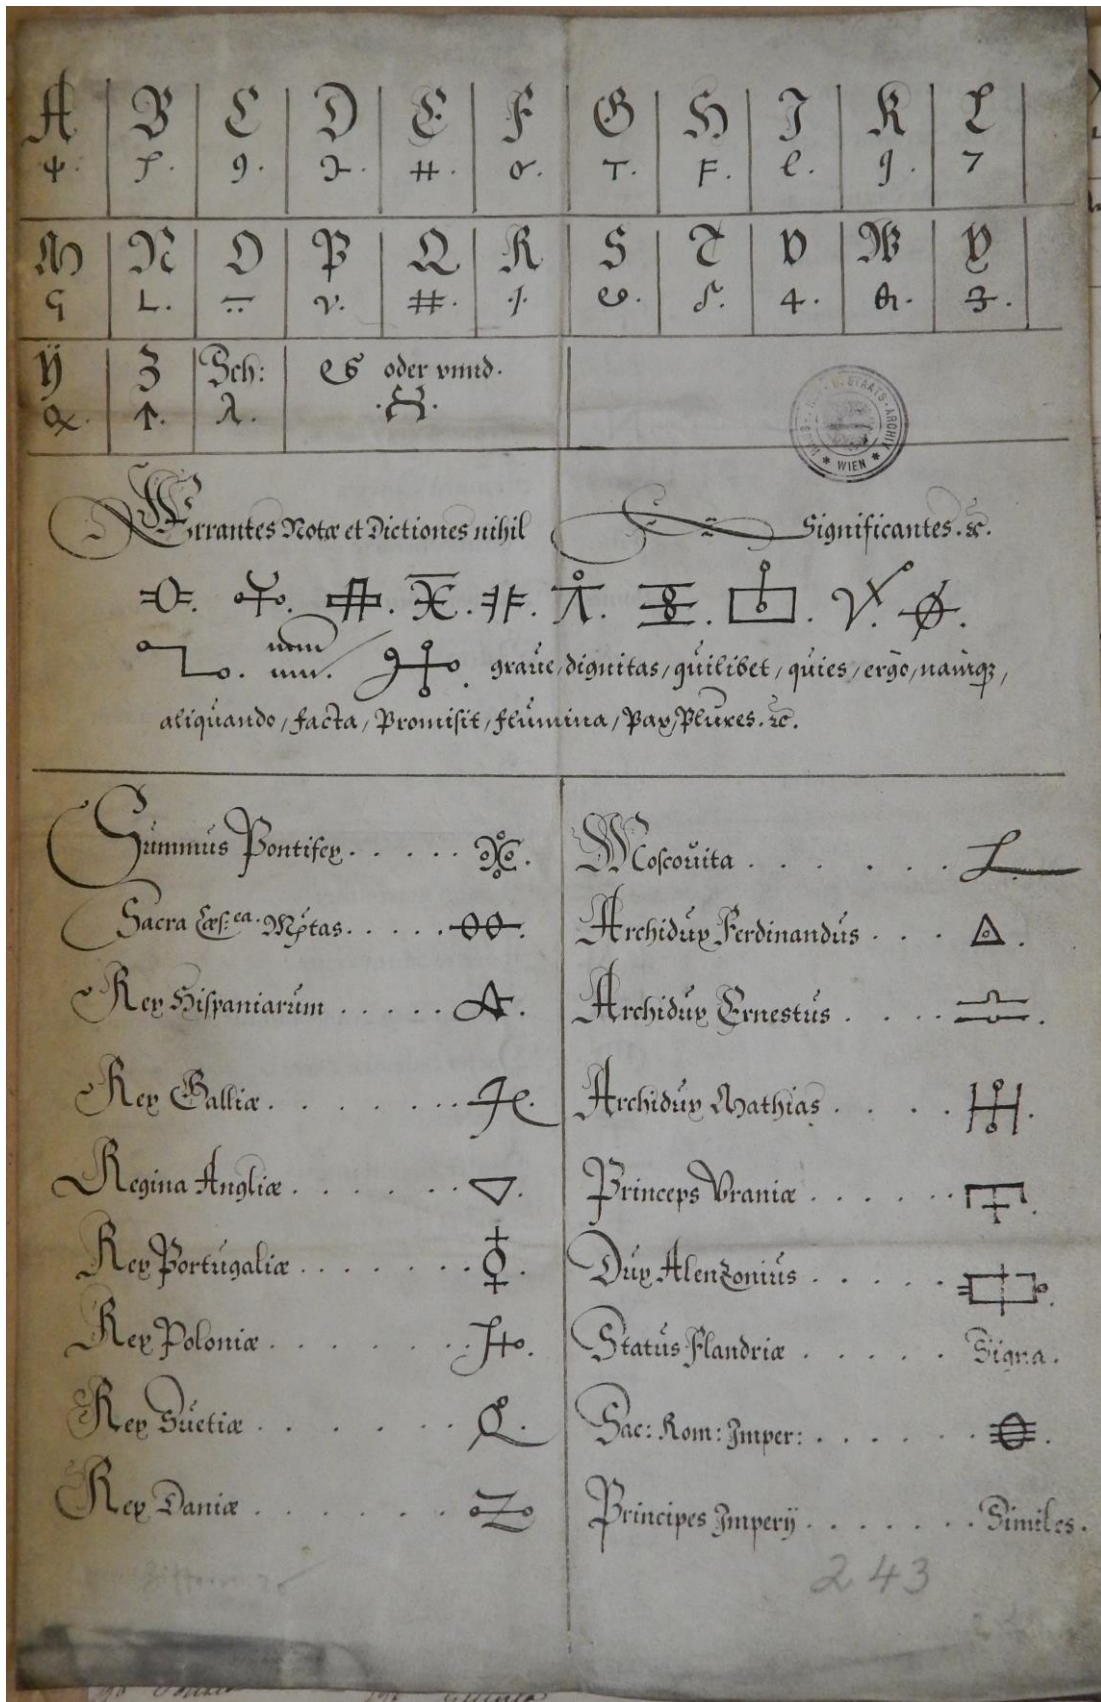 A B C D E F G H I K L
M N O P Q R S T V W X
Ÿ Z Sch: Es oder vnnd.
Errantes Notæ et Dictiones nihil Significantes. &c.
graue, dignitas, quilibet, quies, ergo, namq;,
aliquando, facta, Promisit, flumina, Pax, Plures. &c.
Summus Pontifex
Sacra Cæs:ea. Mtas.
Rex Hispaniarum
Rex Galliæ
Regina Angliæ
Rex Portugaliæ
Rex Poloniæ
Rex Suetiæ
Rex Daniæ
Moscouita
Archidux Ferdinandus
Archidux Ernestus
Archidux Mathias
Princeps Vraniæ
Dux Alenzonius
Status Flandriæ Signa.
Sac: Rom: Imper:
Principes Imperÿ Similes.
243
STAATS-ARCHIV WIEN